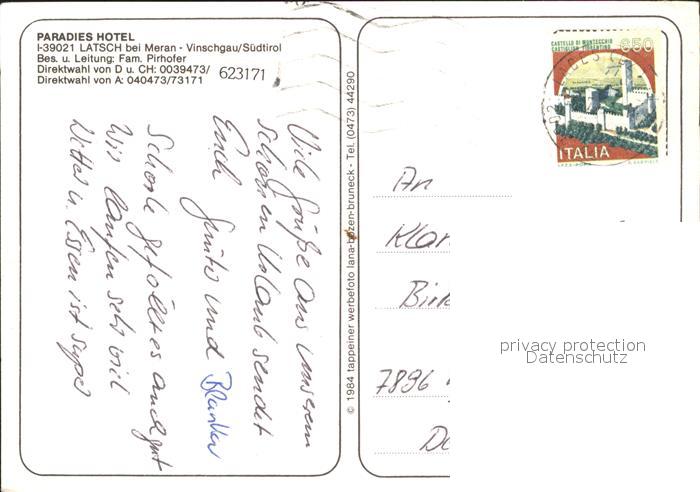 PARADIES HOTEL
I-39021 LATSCH bei Meran - Vinschgau/Südtirol
Bes. u. Leitung: Fam. Pirhofer
Direktwahl von D u. CH: 0039473/ 623171
Direktwahl von A: 040473/73171
Viele Grüße aus unserem
schönen Urlaub sendet
Euch Günter und Blanka
Schorle gefällt es auch gut
Wir laufen sehr viel
Wetter u. Essen ist super
© 1984 tappeiner werbefoto lana-bozen-bruneck - Tel. (0473) 44290
CASTELLO DI MONTECCHIO
CASTIGLION FIORENTINO
650
ITALIA
An
Klar
Birk
7896
privacy protection
Datenschutz